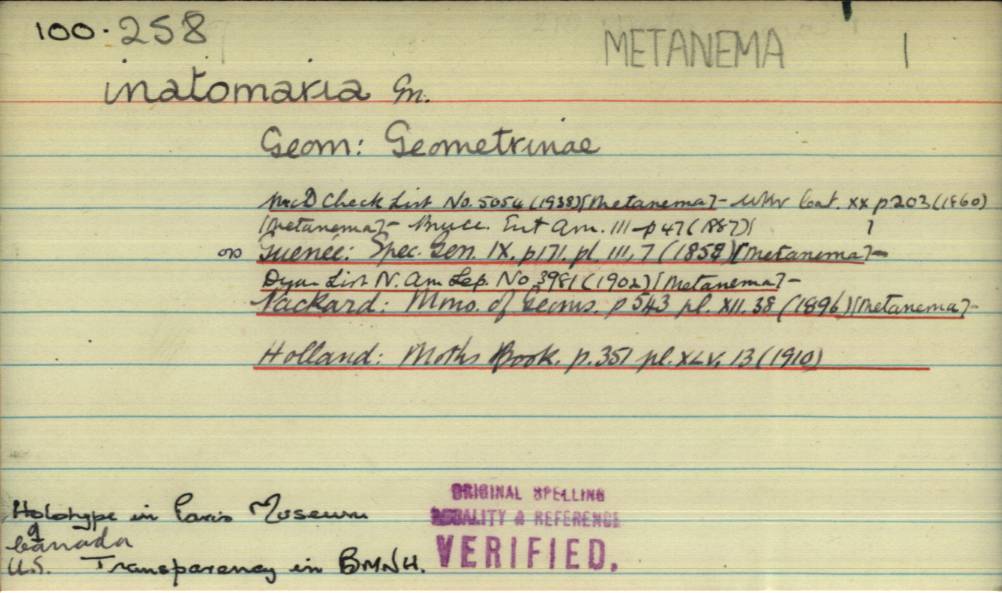 100.258
METANEMA 1
inatomaria Gn.
Geom: Geometrinae
McD Check List No. 5054 (1938) [Metanema] - Wkr Cat. XX p203 (1860)
[Metanema] - Ent Am. III - p47 (1887) [ ]
OD Guenee: Spec. Gen. IX. p171. pl. III, 7 (1858) [Metanema] -
Dyar List N. Am Lep. No 3981 (1902) [Metanema] -
Packard: Mono. of Geoms. p 543 pl. XII. 38 (1896) [Metanema] -
Holland: Moths Book. p. 351 pl. XLV, 13 (1910)
Holotype in Paris Museum
♀
Canada
U.S. Transparency in BMNH.
ORIGINAL SPELLING
LOCALITY & REFERENCE
VERIFIED.